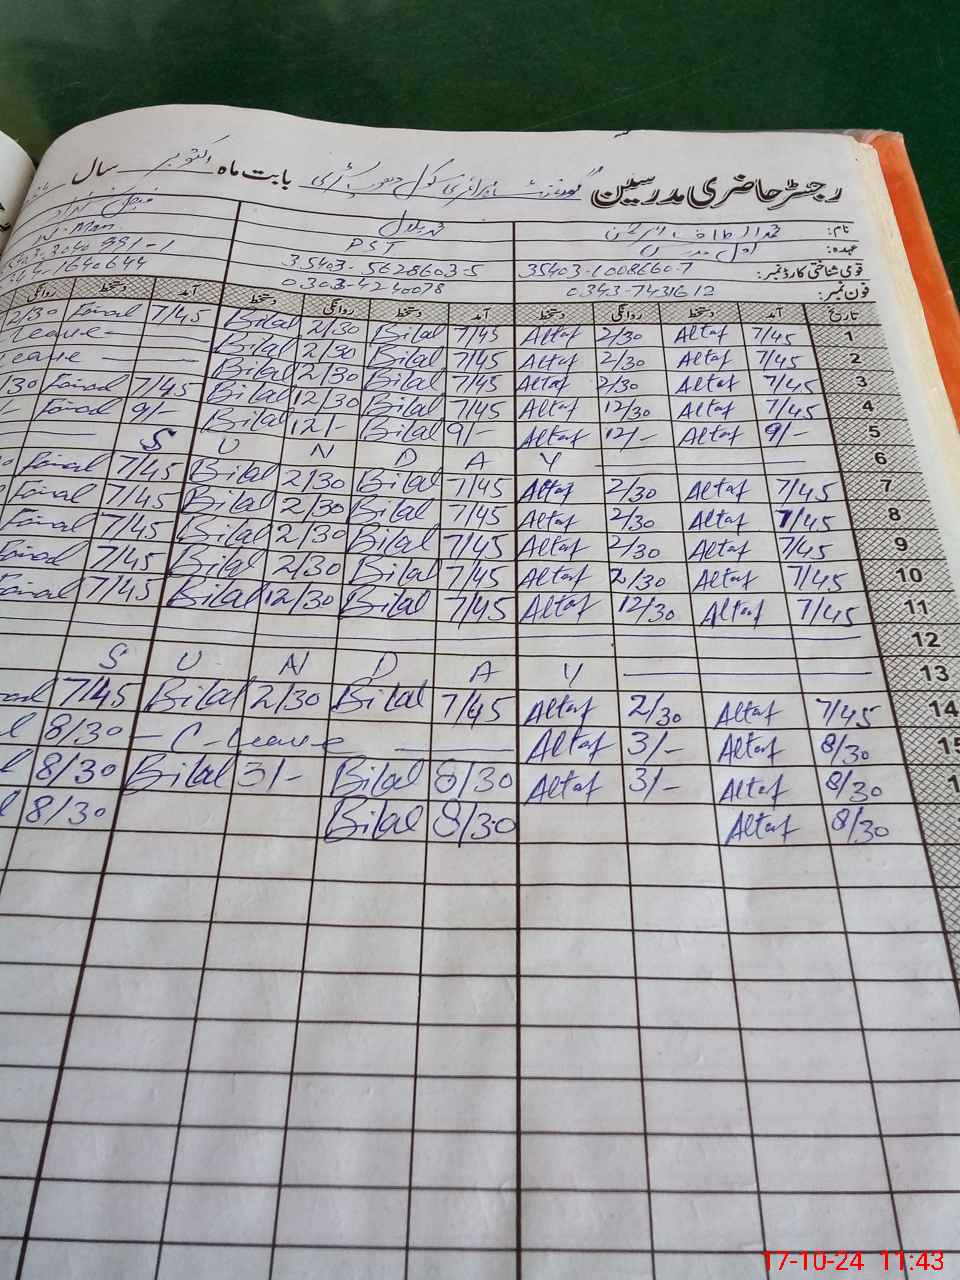 رجسٹر حاضری مدرسین گورنمنٹ پرائمری سکول بابت ماہ اکتوبر سال
نام: محمد الطاف محمد بلال
عہدہ: PST
قومی شناختی کارڈ نمبر: 35403-1008660-7 35403-5628603-5
فون نمبر: 0343-7431612 0303-4240078 1640644
تاریخ آمد دستخط روانگی دستخط آمد دستخط روانگی دستخط آمد دستخط روانگی
1 7/45 Altaf 2/30 Altaf 7/45 Bilal 2/30 Bilal 7/45 2/30
2 7/45 Altaf 2/30 Altaf 7/45 Bilal 2/30 Bilal Leave
3 7/45 Altaf 2/30 Altaf 7/45 Bilal 2/30 Bilal Leave
4 7/45 Altaf 12/30 Altaf 7/45 Bilal 12/30 Bilal 7/45
5 9/- Altaf 12/- Altaf 9/- Bilal 12/- Bilal 9/-
6 S U N D A Y
7 7/45 Altaf 2/30 Altaf 7/45 Bilal 2/30 Bilal 7/45
8 7/45 Altaf 2/30 Altaf 7/45 Bilal 2/30 Bilal 7/45
9 7/45 Altaf 2/30 Altaf 7/45 Bilal 2/30 Bilal 7/45
10 7/45 Altaf 2/30 Altaf 7/45 Bilal 2/30 Bilal 7/45
11 7/45 Altaf 12/30 Altaf 7/45 Bilal 12/30 Bilal 7/45
12
13 S U N D A Y
14 7/45 Altaf 2/30 Altaf 7/45 Bilal 2/30 Bilal 7/45
15 8/30 Altaf 3/- Altaf C-Leave 8/30
8/30 Altaf 3/- Altaf 8/30 Bilal 3/- Bilal 8/30
8/30 Altaf 8/30 Bilal 8/30
17-10-24 11:43